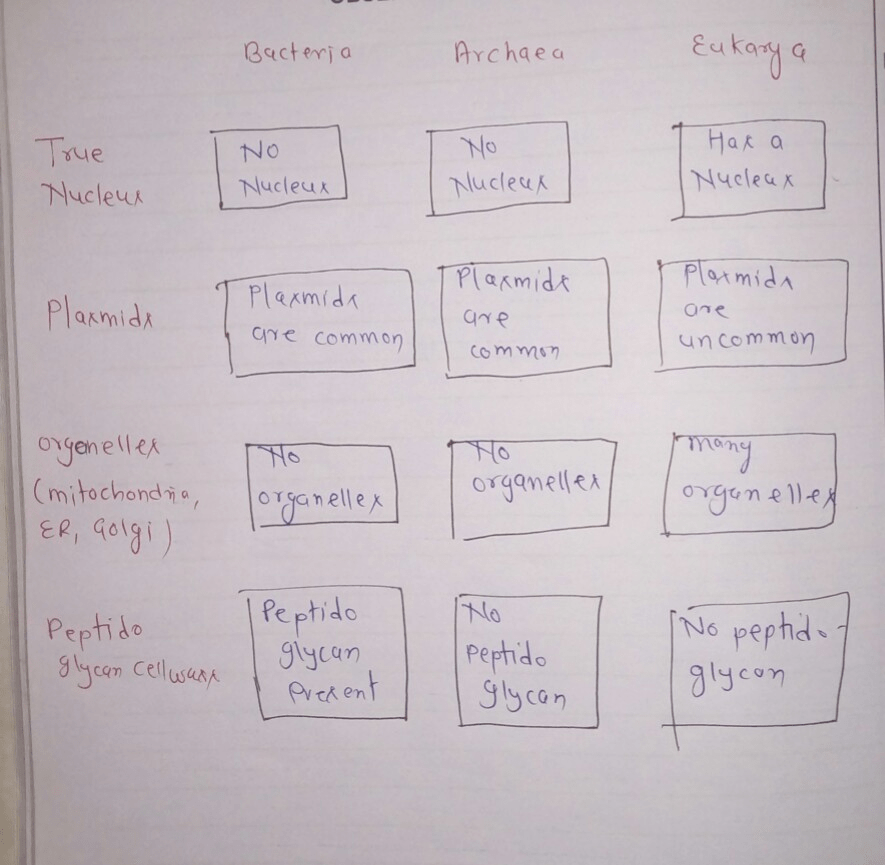 Bacteria Archaea Eukarya
True
Nucleus
No
Nucleus
No
Nucleus
Has a
Nucleus
Plasmids
Plasmids
are common
Plasmids
are
common
Plasmids
are
uncommon
organelles
(mitochondria,
ER, Golgi)
No
organelles
No
organelles
many
organelles
Peptido
glycan cellwall
Peptido
glycan
Present
No
Peptido
glycan
No peptido-
glycan